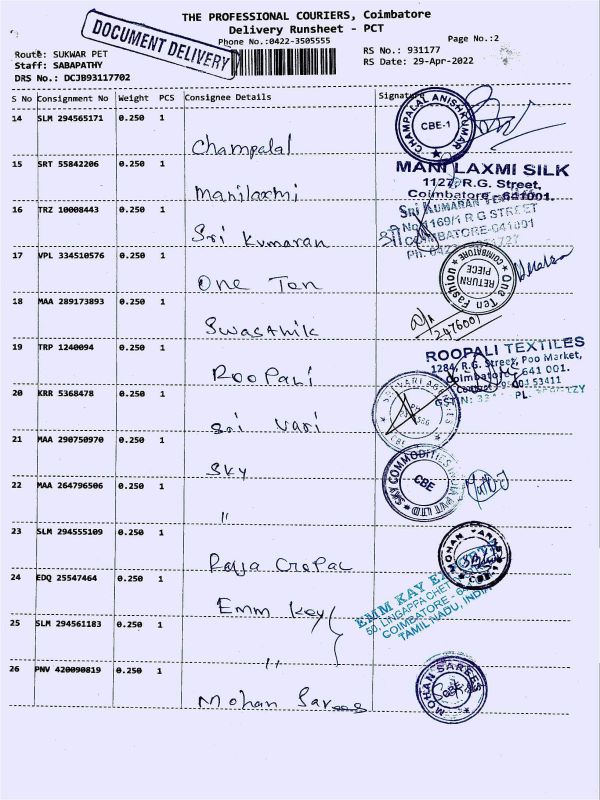 THE PROFESSIONAL COURIERS, Coimbatore
Delivery Runsheet - PCT
DOCUMENT DELIVERY
Phone No.:0422-3505555
Page No.:2
Route: SUKWAR PET
RS No.: 931177
Staff: SABAPATHY
RS Date: 29-Apr-2022
DRS No.: DCJB93117702
S No Consignment No Weight PCS Consignee Details Signature
14 SLM 294565171 0.250 1
Champalal
CHAMPALAL ANISHKUMAR CBE-1
15 SRT 55842206 0.250 1
Manilaxmi
MANI LAXMI SILK
1127, R.G. Street,
Coimbatore - 641001.
16 TRZ 10008443 0.250 1
Sri Kumaran
SRI KUMARAN
No 1169/1 R G STREET
COIMBATORE-641001
17 VPL 334510576 0.250 1
One Ten
One Ten Fashion RETURN PIECE COIMBATORE
18 MAA 289173893 0.250 1
Swasthik
19 TRP 1240094 0.250 1
Roopali
ROOPALI TEXTILES
1284, R.G. Street, Poo Market,
Coimbatore - 641 001.
20 KRR 5368478 0.250 1
Sri Vari
21 MAA 290750970 0.250 1
Sky
SKY COMMODITIES INDIA PVT LTD CBE
22 MAA 264796506 0.250 1
"
23 SLM 294555109 0.250 1
24 EDQ 25547464 0.250 1
Emm Key
EMM KAY
50, LINGAPPA CHET
COIMBATORE - 6
TAMIL NADU, INDIA
25 SLM 294561183 0.250 1
"
26 PNV 420090819 0.250 1
Mohan Sarees
MOHAN SAREES CBE